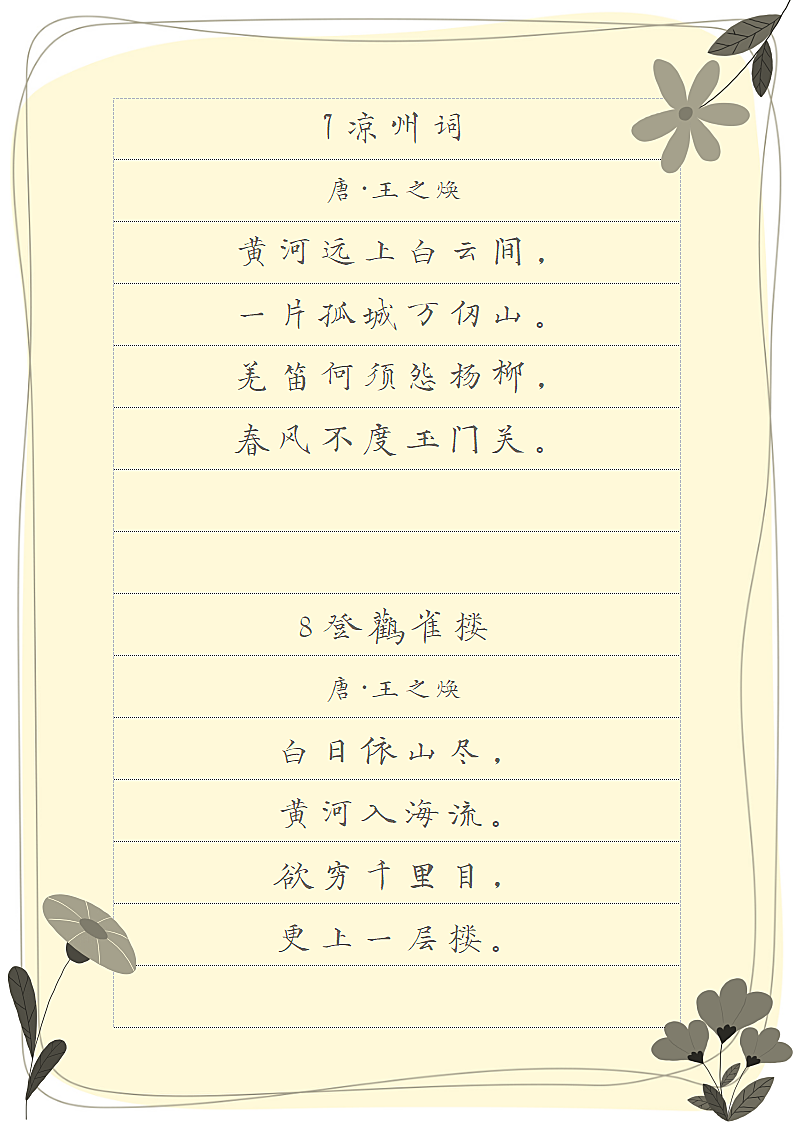 7凉州词
唐·王之焕
黄河远上白云间，
一片孤城万仞山。
羌笛何须怨杨柳，
春风不度玉门关。
8登鹳雀楼
唐·王之焕
白日依山尽，
黄河入海流。
欲穷千里目，
更上一层楼。